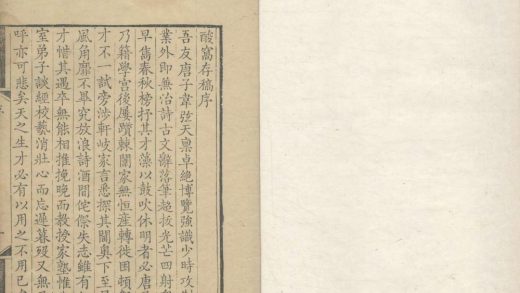 酸窩存稿序
吾友唐子韋弦天稟卓絶博覽強識少時攻
業外即兼治詩古文辭落筆超拔光芒四射
早雋春秋榜抒其才藻以鼓吹休明者必唐
乃籍學宮後屢躓棘闈家無恒産轉徙困頓
才不一試旁涉軒岐家言悉探其閫奧下至
風角靡不畢究放浪詩酒間侘傺失志雖有
才惜其遇卒無能相推挽晚而教授家塾惟
室弟子談經校藝消壯心而忘遲暮歿又無
呼亦可悲矣天之生才必有以用之不用已